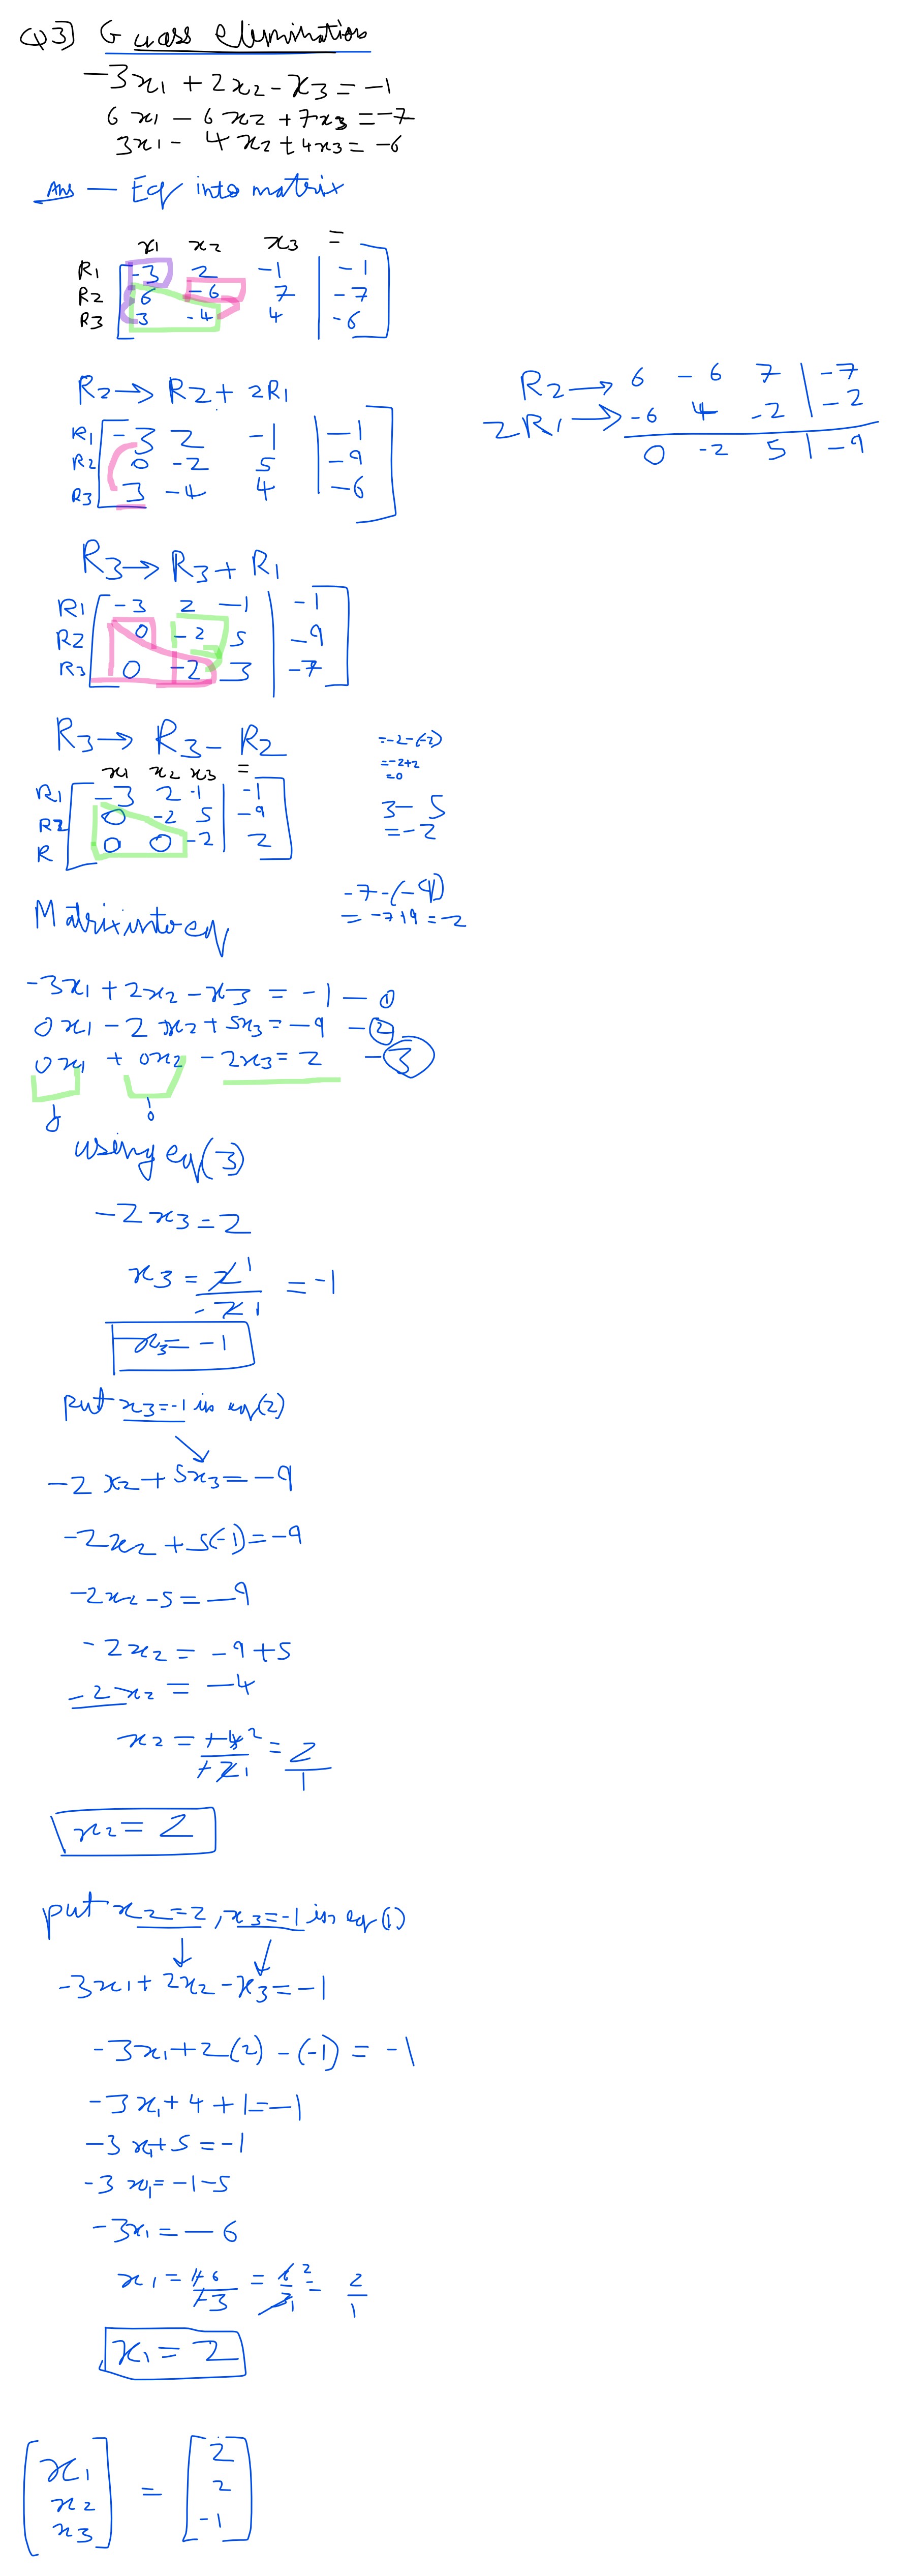 Q3) Guass elimination
-3x1 + 2x2 - x3 = -1
6x1 - 6x2 + 7x3 = -7
3x1 - 4x2 + 4x3 = -6
Ans — Eq into matrix
x1 x2 x3 =
R1 -3 2 -1 | -1
R2 6 -6 7 | -7
R3 3 -4 4 | -6
R2 → R2 + 2R1
R1 -3 2 -1 | -1
R2 0 -2 5 | -9
R3 3 -4 4 | -6
R2 → 6 -6 7 | -7
2R1 → -6 4 -2 | -2
0 -2 5 | -9
R3 → R3 + R1
R1 -3 2 -1 | -1
R2 0 -2 5 | -9
R3 0 -2 3 | -7
R3 → R3 - R2
x1 x2 x3 =
R1 -3 2 -1 | -1
R2 0 -2 5 | -9
R 0 0 -2 | 2
= -2 - (-2)
= -2 + 2
= 0
3 - 5
= -2
-7 - (-9)
= -7 + 9 = -2
Matrix into eq
-3x1 + 2x2 - x3 = -1 — ①
0x1 - 2x2 + 5x3 = -9 - ②
0x1 + 0x2 - 2x3 = 2 - ③
0
using eq (3)
-2x3 = 2
x3 = 2 1 / -2 1 = -1
x3 = -1
put x3 = -1 in eq (2)
-2x2 + 5x3 = -9
-2x2 + 5(-1) = -9
-2x2 - 5 = -9
-2x2 = -9 + 5
-2x2 = -4
x2 = +4 2 / +2 1 = 2 / 1
x2 = 2
put x2 = 2, x3 = -1 in eq (1)
-3x1 + 2x2 - x3 = -1
-3x1 + 2(2) - (-1) = -1
-3x1 + 4 + 1 = -1
-3x1 + 5 = -1
-3x1 = -1 - 5
-3x1 = -6
x1 = +6 / +3 = 6 2 / 3 1 = 2 / 1
x1 = 2
x1 2
x2 = 2
x3 -1